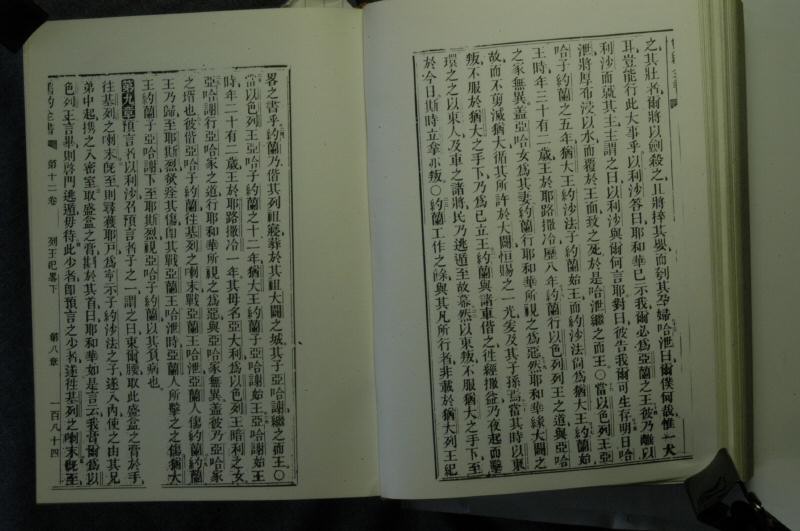 之其壯者爾將以劍殺之且將捽其嬰而刳其孕婦哈泄曰爾僕何哉惟一犬
耳豈能行此大事乎以利沙答曰耶和華已示我爾必為亞蘭之王彼乃離以
利沙而就其主主謂之曰以利沙與爾何言耶對曰彼告我爾可生存明日哈
泄將厚布浸以水而覆於王面致之死於是哈泄繼之而王〇當以色列王亞
哈子約蘭之五年猶大王約沙法子約蘭始王而約沙法尚為猶大王約蘭始
王時年三十有二歲王於耶路撒冷歷八年約蘭行以色列列王之道與亞哈
之家無異蓋亞哈女為其妻約蘭行耶和華所視之為惡然耶和華緣大闢之
故而不剪滅猶大循其所許於大闢恒賜之一光爰及其子孫焉當其時以東
叛不服於猶大之手下乃為己立王約蘭與諸車偕之往經撒益乃夜起而擊
環之之以東人及車之諸將民乃逃遁至故幕然以東叛不服猶大之手下至
於今日斯時立拿亦叛〇約蘭工作之餘與其凡所行者非載於猶大列王紀
畧之書乎約蘭乃偕其列祖寢葬於其祖大闢之城其子亞哈謝繼之而王〇
當以色列王亞哈子約蘭之十二年猶大王約蘭子亞哈謝始王亞哈謝始王
時年二十有二歲王於耶路撒冷一年其母名亞大利為以色列王暗利之女
亞哈謝行亞哈家之道行耶和華所視之為惡與亞哈家無異蓋彼乃亞哈家
之壻也彼偕亞哈子約蘭往基列之喇末戰亞蘭王哈泄亞蘭人傷約蘭約蘭
王乃歸至耶斯烈欲痊其傷即其戰亞蘭王哈泄時亞蘭人所擊之之傷猶大
王約蘭子亞哈謝下至耶斯烈視亞哈子約蘭以其負病也
第九章預言者以利沙召預言者子之一謂之曰束爾腰取此盛盃之膏於手
往基列之喇末既至則尋獲耶戶為寧示子約沙法之子遂入內使之由其兄
弟中起攜之入密室取盛盃之膏斟於其首曰耶和華如是言云我膏爾為以
色列王言畢則啓門逃遁毋待此少者即預言之少者遂往基列之喇末既至
舊約全書 第十二卷 列王紀畧下 第八章 一百八十四